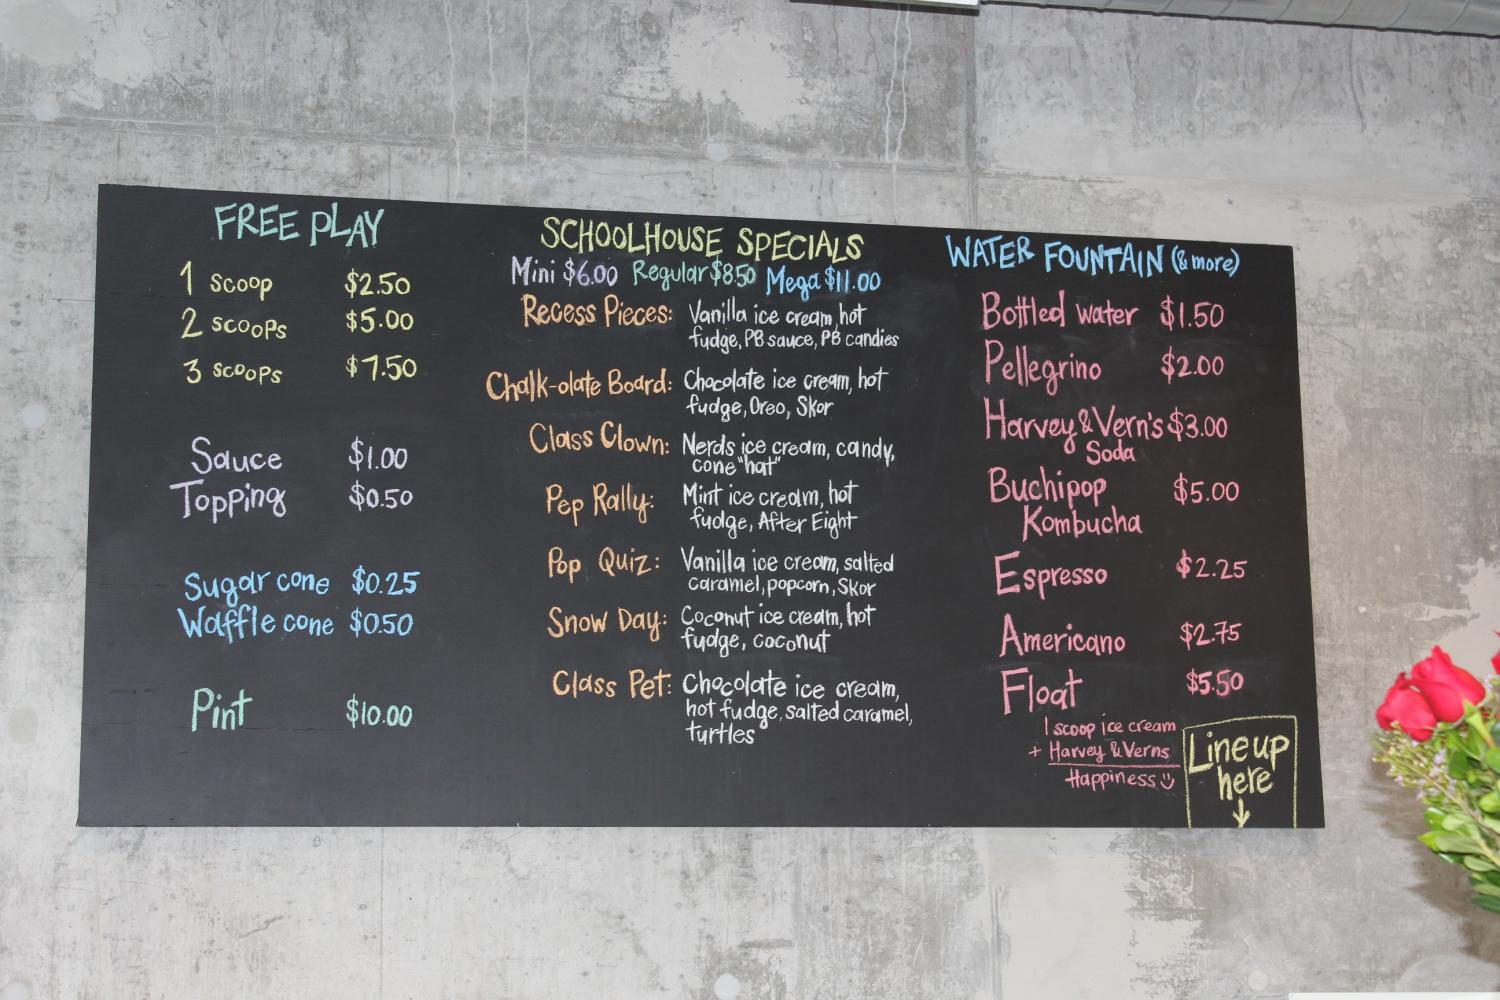 FREE PLAY
1 scoop $2.50
2 scoops $5.00
3 scoops $7.50
Sauce $1.00
Topping $0.50
Sugar cone $0.25
Waffle cone $0.50
Pint $10.00
SCHOOLHOUSE SPECIALS
Mini $6.00 Regular $8.50 Mega $11.00
Recess Pieces: Vanilla ice cream, hot
fudge, PB sauce, PB candies
Chalk-olate Board: Chocolate ice cream, hot
fudge, Oreo, Skor
Class Clown: Nerds ice cream, candy,
cone "hat"
Pep Rally: Mint ice cream, hot
fudge, After Eight
Pop Quiz: Vanilla ice cream, salted
caramel, popcorn, Skor
Snow Day: Coconut ice cream, hot
fudge, coconut
Class Pet: Chocolate ice cream,
hot fudge, salted caramel,
turtles
WATER FOUNTAIN (& more)
Bottled water $1.50
Pellegrino $2.00
Harvey & Vern's $3.00
Soda
Buchipop $5.00
Kombucha
Espresso $2.25
Americano $2.75
Float $5.50
1 scoop ice cream
+ Harvey & Verns
Happiness
Line up
here